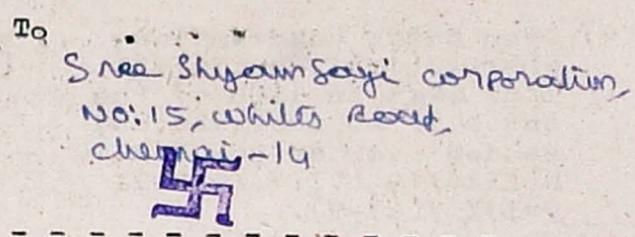 To
Sree Shyam Sayi corporation,
No: 15, whites Road,
chennai - 14